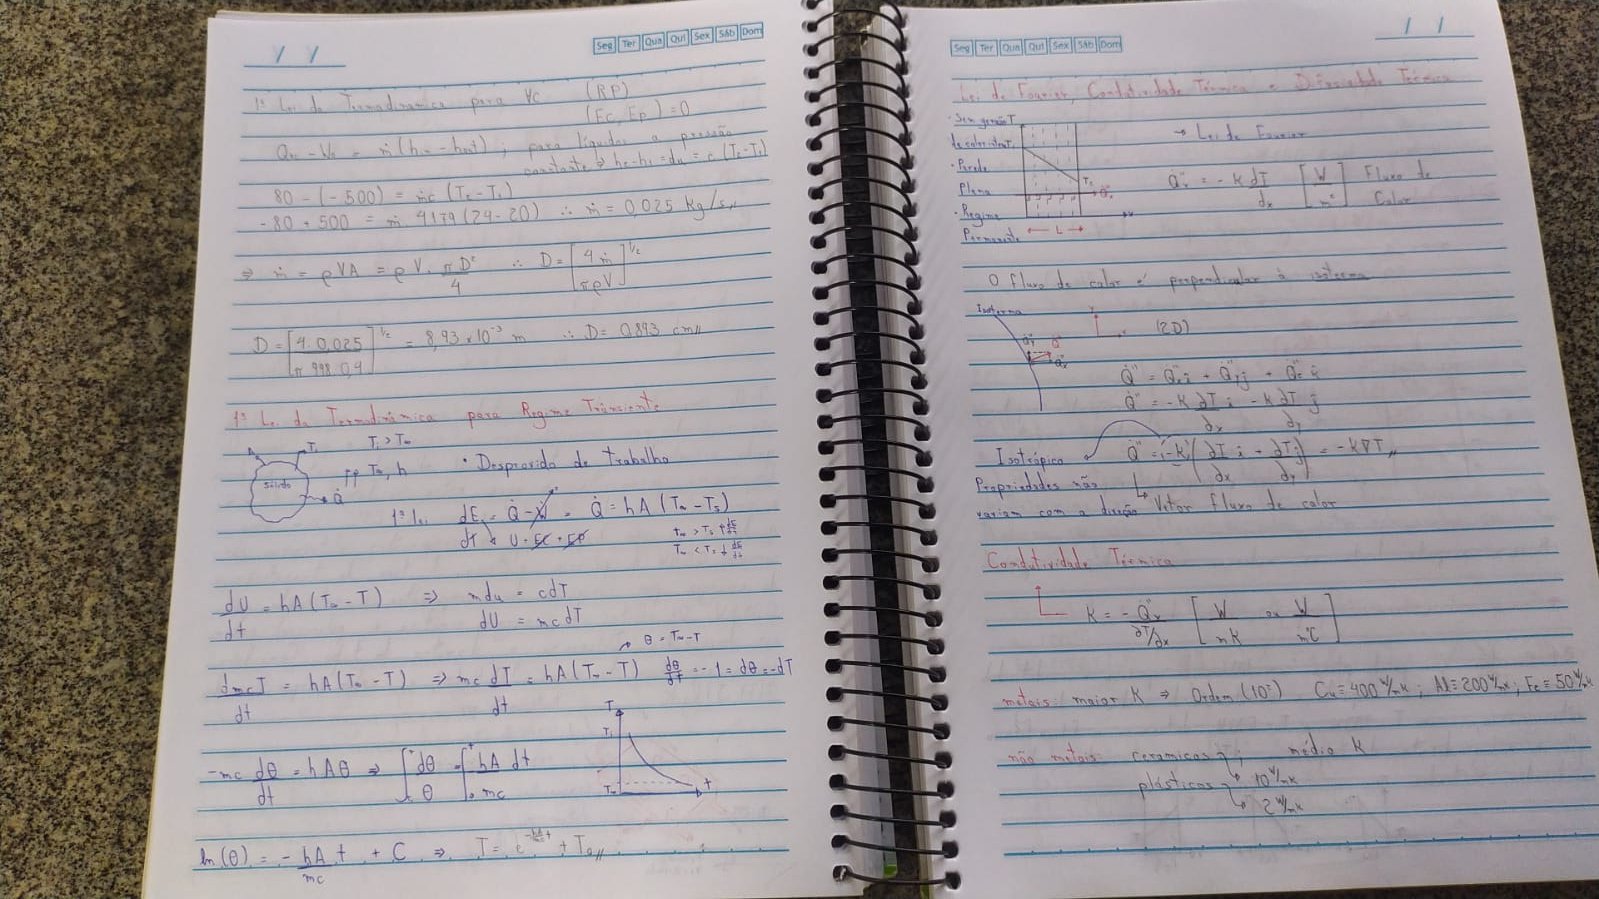 / /
Seg Ter Qua Qui Sex Sáb Dom
1ª Lei da Termodinâmica para VC (RP)
(Ec, Ep) = 0
= ṁ(hin - hout); para líquidos a pressão
constante ⇒ h2-h1 = du = c(T2-T1)
80 - (-500) = ṁc(T2-T1)
-80 + 500 = ṁ. 4179(24-20) ∴ ṁ = 0,025 Kg/s,,
⇒ ṁ = ρVA = ρV. πD²/4 ∴ D = [4ṁ/πρV]^1/2
D = [4. 0,025/π 998 0,4]^1/2 = 8,93 x 10⁻³ m ∴ D = 0,893 cm,,
1ª Lei da Termodinâmica para Regime Transiente
Ti > T∞
T∞, h
• Desprovido de trabalho
Sólido
Q̇
1ª lei dE/dt = Q̇ - Ẇ = Q̇ = hA(T∞ - Ts)
U + EC + EP
T∞ > Ts ↑ dE/dt
T∞ < Ts ↓ dE/dt
dU/dt = hA(T∞ - T) ⇒ mdu = cdT
dU = mcdT
→ θ = T∞ - T
dmcT/dt = hA(T∞ - T) ⇒ mc dT/dt = hA(T∞ - T) dθ/dT = -1 = dθ = -dT
-mc dθ/dt = hAθ ⇒ ∫ dθ/θ = ∫ hA/mc dt
T
Ti
T∞
t
ln(θ) = - hA/mc t + C ⇒ T = e^(-hA/mc t) + T∞,,
/ /
Seg Ter Qua Qui Sex Sáb Dom
Lei de Fourier, Condutividade Térmica e Difusividade Térmica
• Sem geração
de calor
• Parede
Plana
• Regime
Permanente
T
T2
L
→ Lei de Fourier
Q̇"x = -K dT/dx [W/m²] Fluxo de
Calor
O fluxo de calor é perpendicular à isoterma
Isoterma
(2D)
Q̇" = Q̇"x i + Q̇"y j + Q̇"z
Q̇" = -K ∂T/∂x i - K ∂T/∂y j
Isotrópico
Q̇" = -K (∂T/∂x i + ∂T/∂y j) = -K∇T,,
Propriedades não
variam com a direção
Vetor fluxo de calor
Condutividade Térmica
K = - Q̇"x/∂T/∂x [W/mK ou W/m°C]
metais: maior K ⇒ Ordem (10²) Cu = 400 W/mK; Al = 200 W/mK; Fe = 50 W/mK
não metais: cerâmicas; médio K
plásticos
10 W/mK
2 W/mK